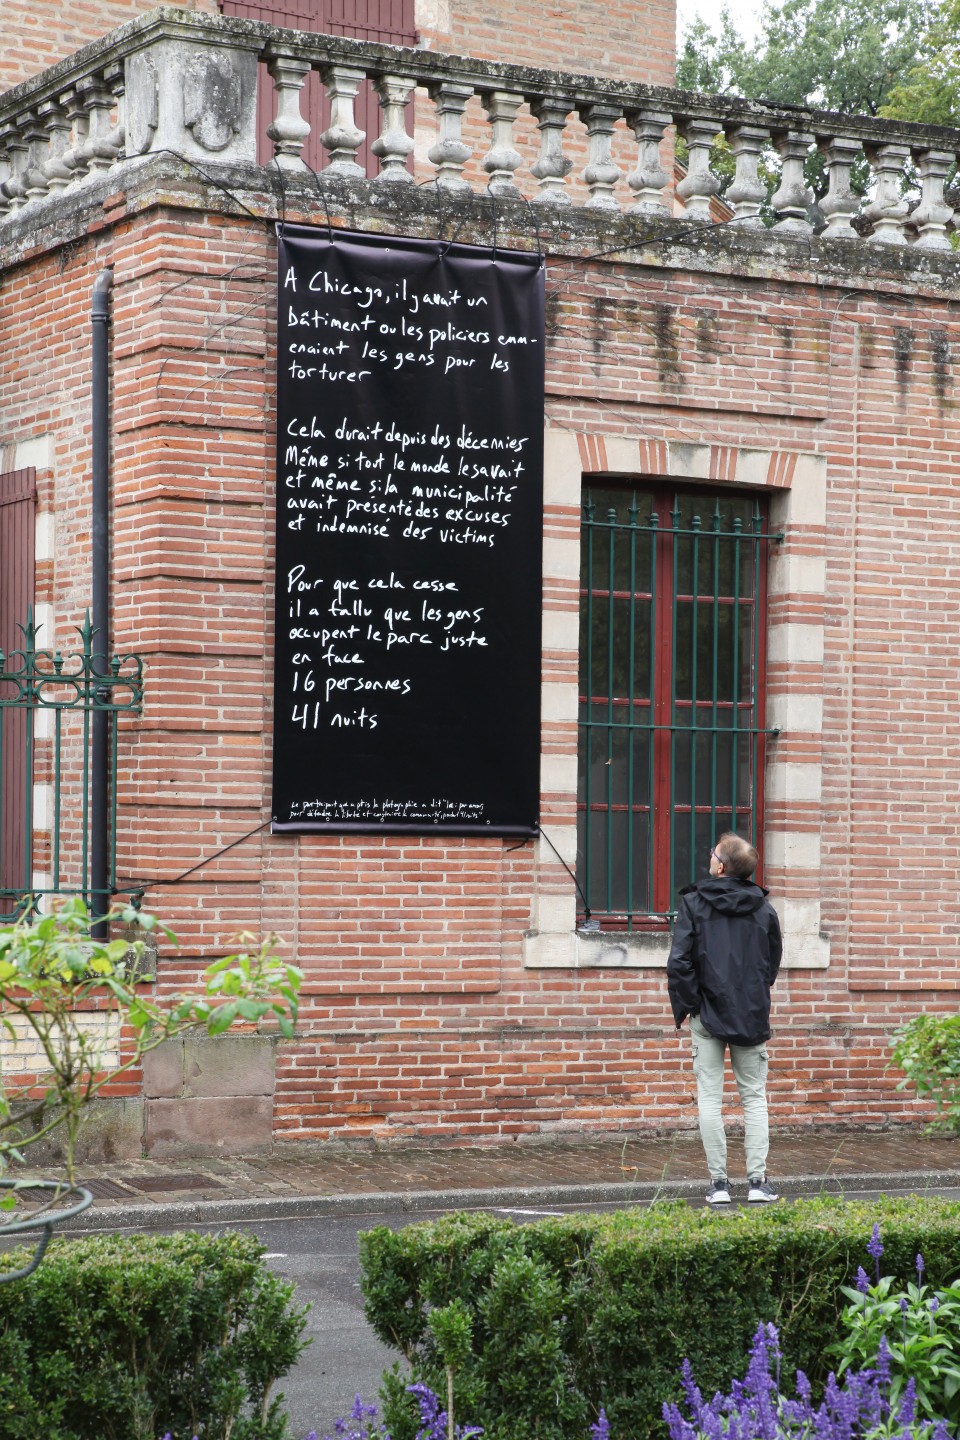 A Chicago, il y avait un
bâtiment ou les policiers emm-
enaient les gens pour les
torturer
Cela durait depuis des décennies
Même si tout le monde le savait
et même si la municipalité
avait présenté des excuses
et indemnisé des victims
Pour que cela cesse
il a fallu que les gens
occupent le parc juste
en face
16 personnes
41 nuits
la photographie a dit
défendre la liberté et construire la communauté, pendant 41 nuits"